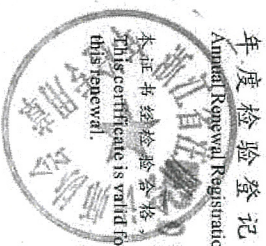 年度检验登记
Annual Renewal Registratio
本证书经检验合格，
This certificate is valid fo
this renewal.
江省注